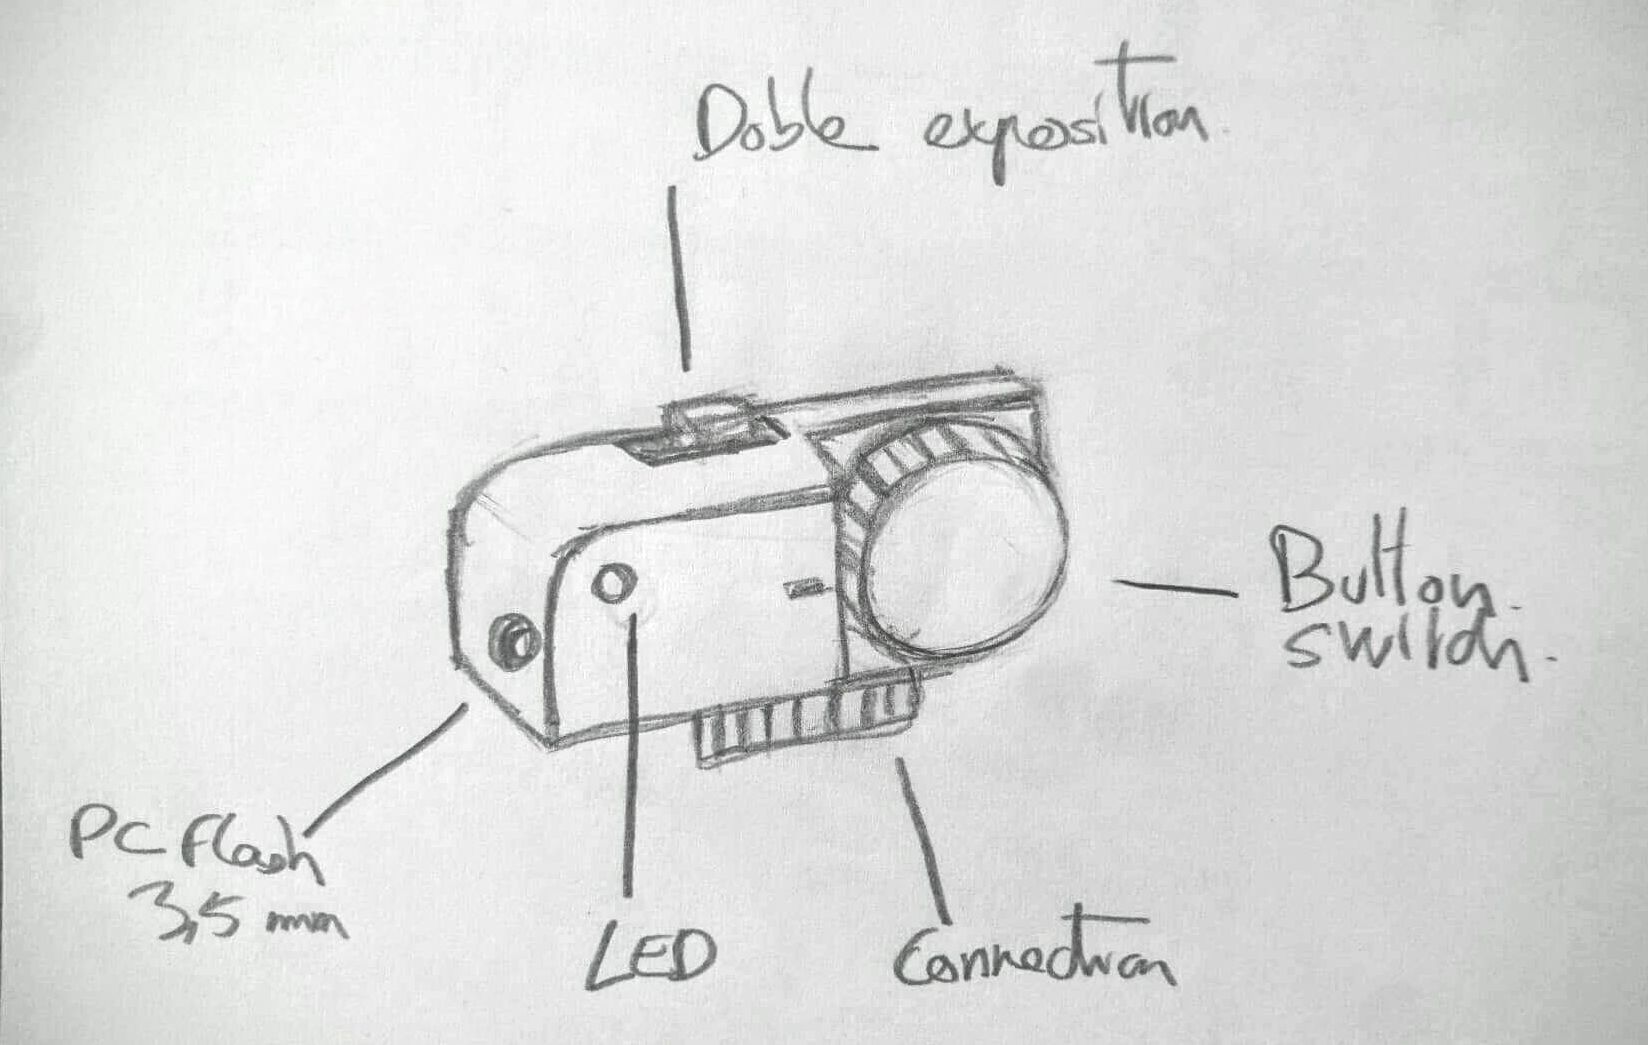 Doble exposition
Button
switch.
PC Flash
3,5 mm
LED
Connection